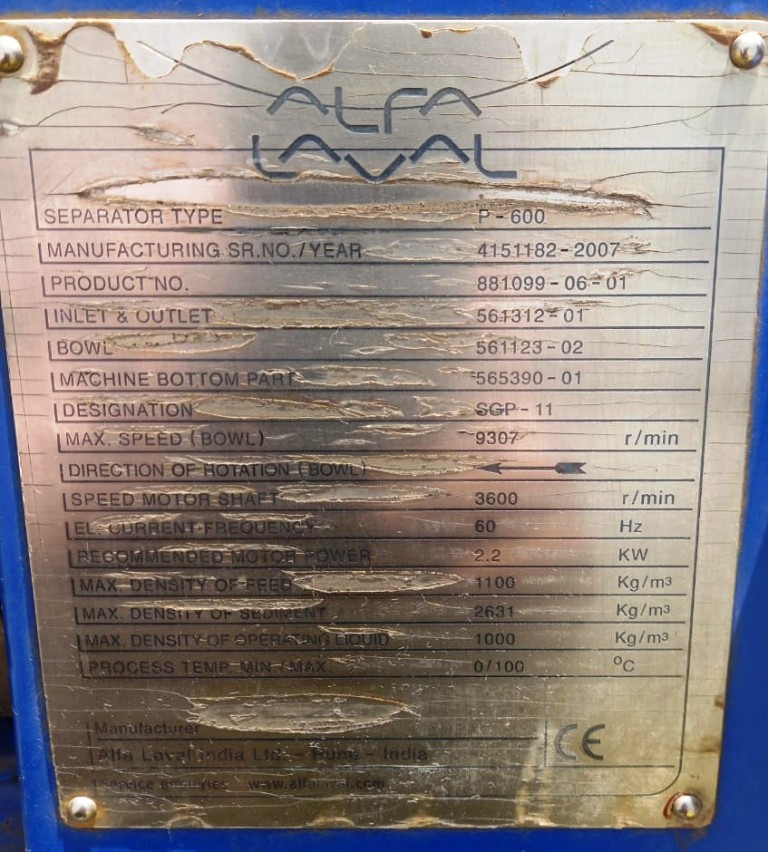 ALFA
LAVAL
SEPARATOR TYPE P-600
MANUFACTURING SR.NO./YEAR 4151182-2007
PRODUCT NO. 881099-06-01
INLET & OUTLET 561312-01
BOWL 561123-02
MACHINE BOTTOM PART 565390-01
DESIGNATION SGP-11
MAX. SPEED (BOWL) 9307 r/min
DIRECTION OF ROTATION (BOWL)
SPEED MOTOR SHAFT 3600 r/min
EL. CURRENT FREQUENCY 60 Hz
RECOMMENDED MOTOR POWER 2.2 KW
MAX. DENSITY OF FEED 1100 Kg/m³
MAX. DENSITY OF SEDIMENT 2631 Kg/m³
MAX. DENSITY OF OPERATING LIQUID 1000 Kg/m³
PROCESS TEMP. MIN./MAX. 0/100 °C
Manufacturer
Alfa Laval India Ltd. - Pune - India CE
Service enquiries www.alfalaval.com